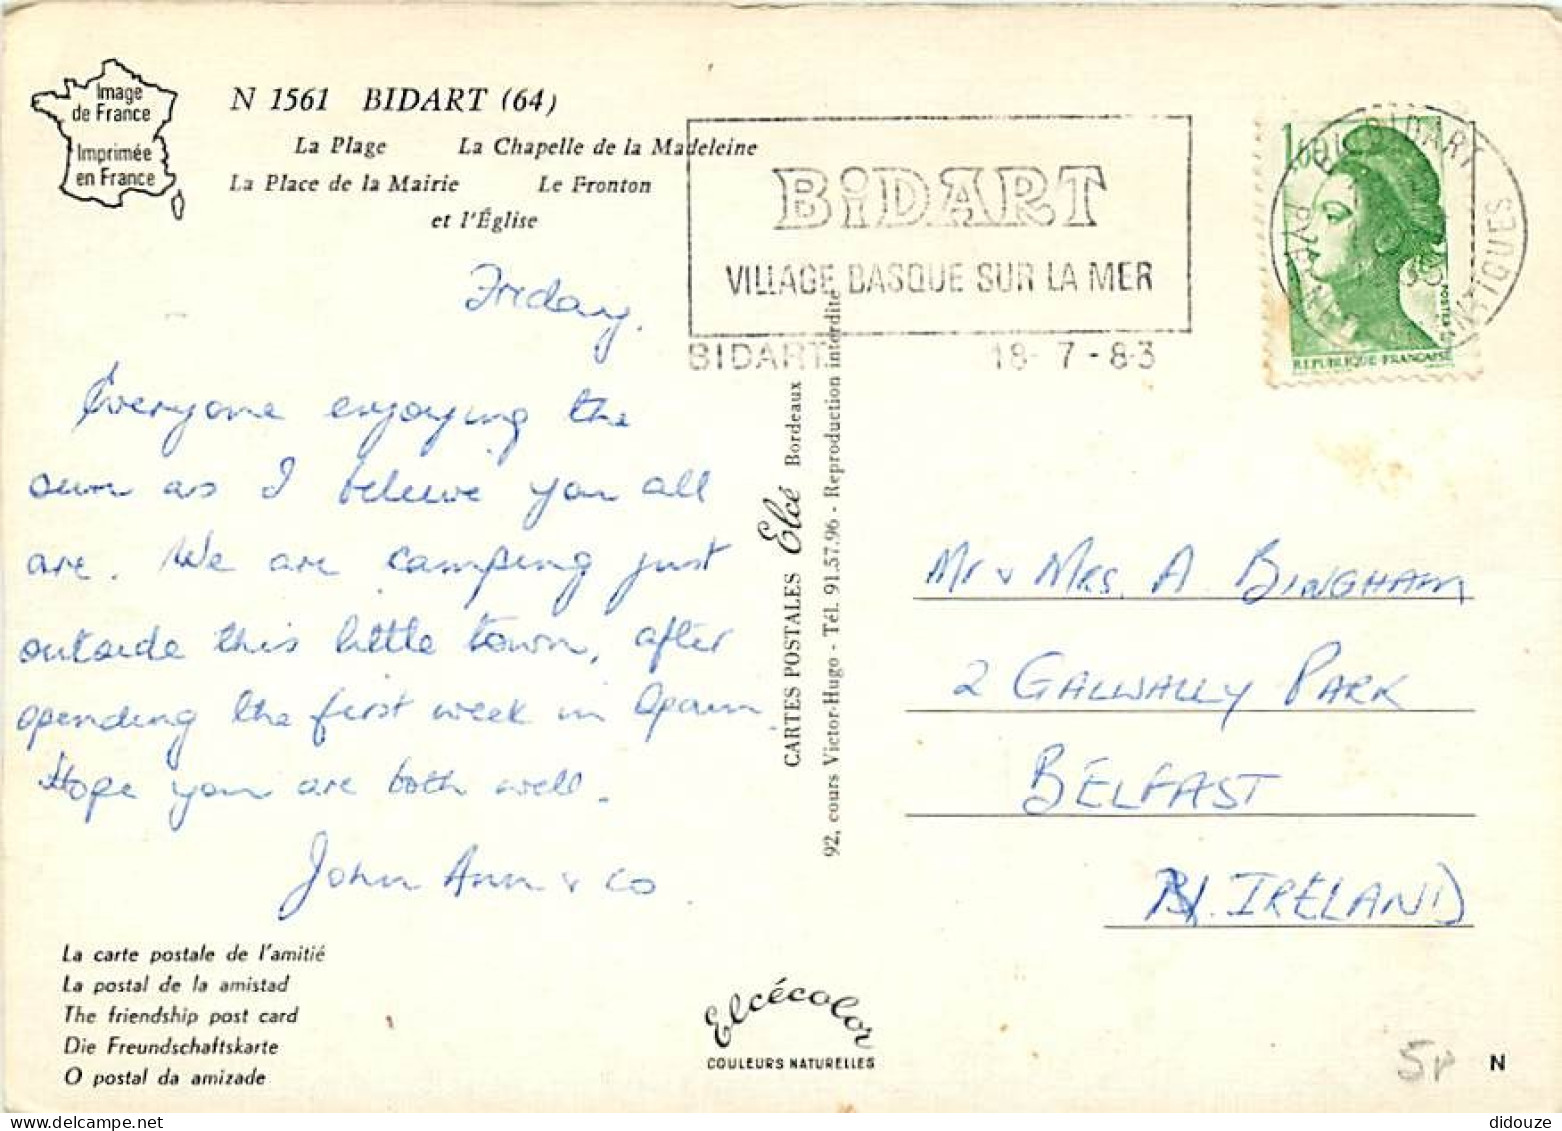 Image
de France
Imprimée
en France
N 1561 BIDART (64)
La Plage La Chapelle de la Madeleine
La Place de la Mairie Le Fronton
et l'Église
BiDART
VILLAGE BASQUE SUR LA MER
BIDART 18-7-83
BIDART
1,60
POSTES
REPUBLIQUE FRANÇAISE
Friday.
Everyone enjoying the
sun as I believe you all
are. We are camping just
outside this little town, after
spending the first week in Spain.
Hope you are both well.
John Ann & co
CARTES POSTALES Elcé Bordeaux
92, cours Victor-Hugo - Tél. 91.57.96 - Reproduction interdite
Mr & Mrs. A. BINGHAM
2 GALWALLY PARK
BELFAST
N. IRELAND
La carte postale de l'amitié
La postal de la amistad
The friendship post card
Die Freundschaftskarte
O postal da amizade
Elcécolor
COULEURS NATURELLES
N
didouze